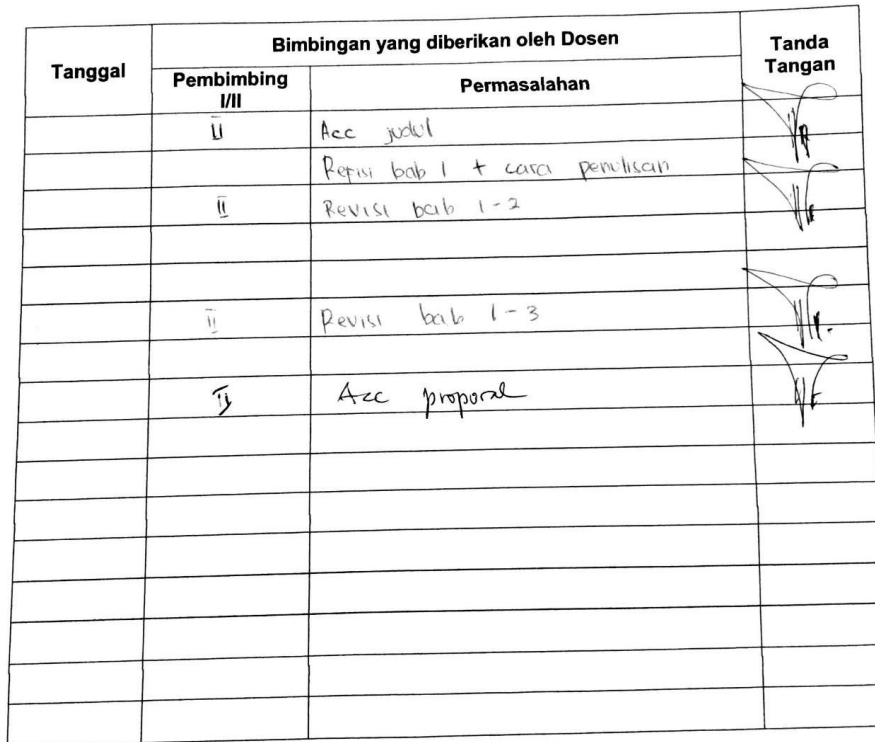 Tanggal
Bimbingan yang diberikan oleh Dosen
Tanda
Tangan
Pembimbing
I/II
Permasalahan
II
Acc judul
Refisi bab 1 + cara penulisan
II
Revisi bab 1-2
II
Revisi bab 1-3
II
Acc proposal